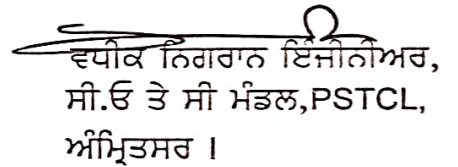 ਵਧੀਕ ਨਿਗਰਾਨ ਇੰਜੀਨੀਅਰ,
ਸੀ.ਓ ਤੇ ਸੀ ਮੰਡਲ,PSTCL,
ਅੰਮ੍ਰਿਤਸਰ ।